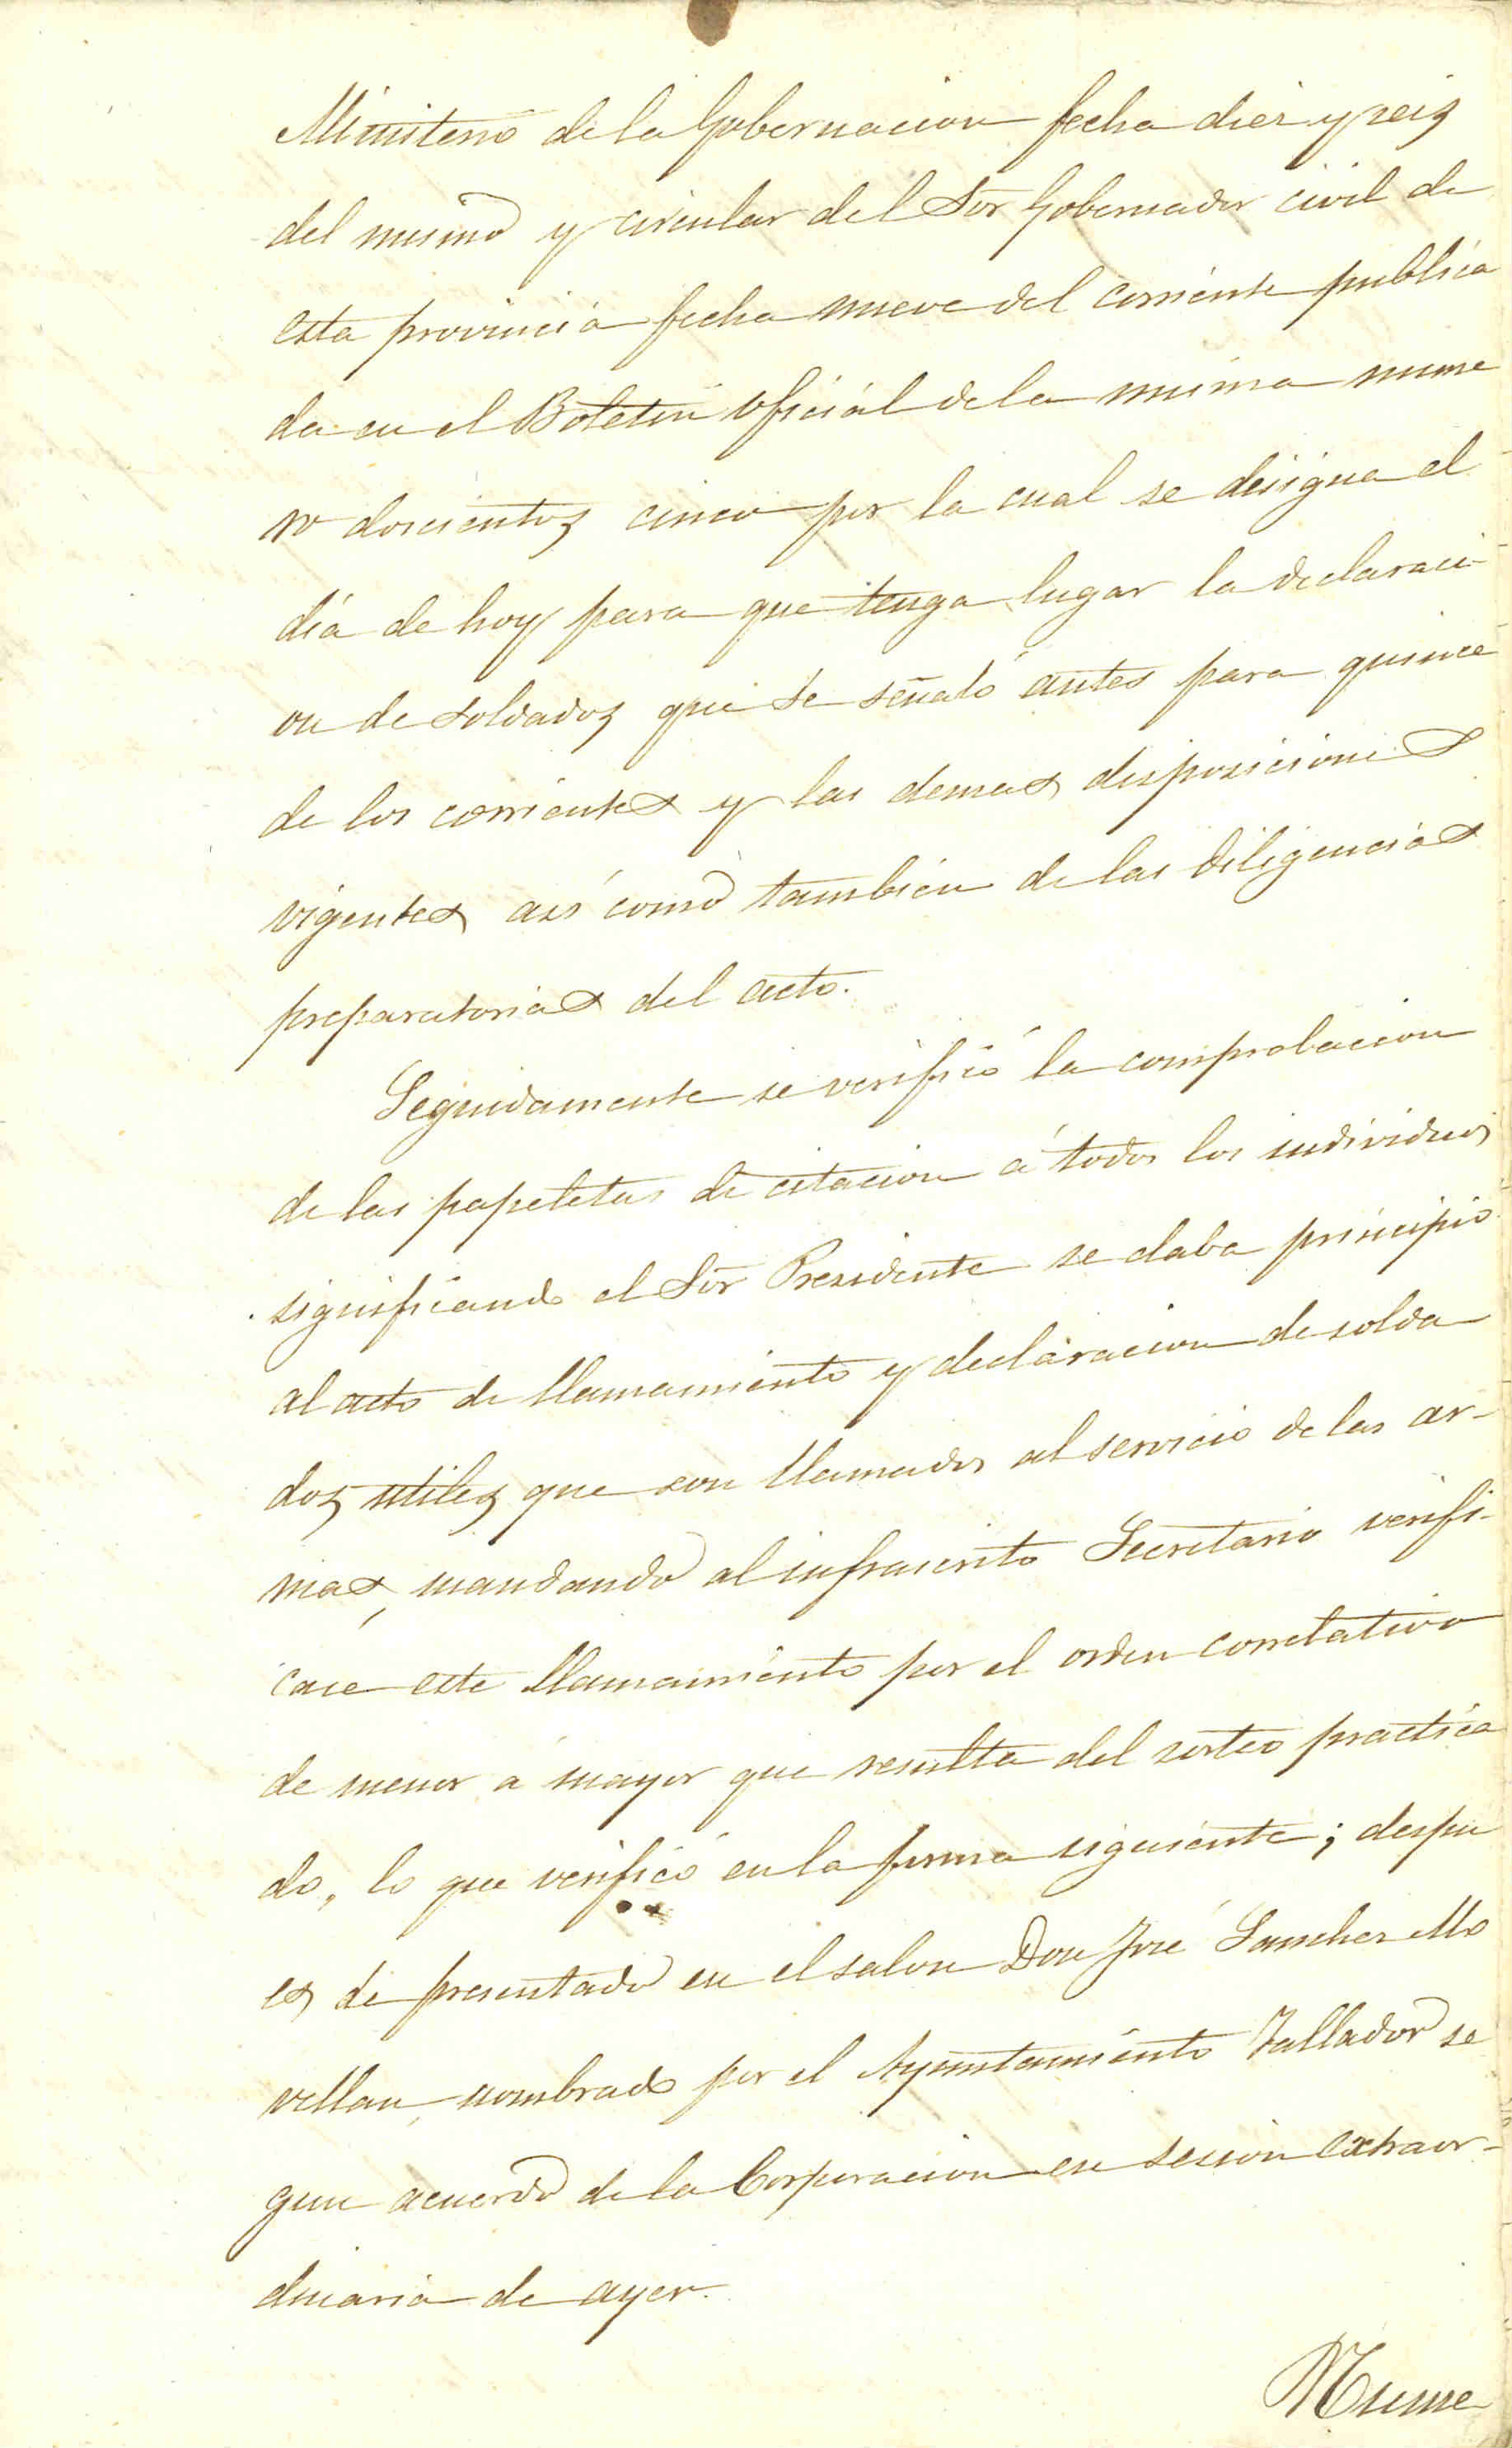 Ministerio de la Gobernacion fecha diez y seis
del mismo y circular del Sor Gobernador civil de
esta provincia fecha nueve del corriente publica
da en el Boletin oficial de la misma nume
ro doscientos cinco por la cual se designa el
día de hoy para que tenga lugar la declaraci
on de soldados que se señaló antes para quince
de los corrientes y las demas disposiciones
vigentes así como tambien de las diligencias
preparatorias del acto.
Seguidamente se verificó la comprobacion
de las papeletas de citacion á todos los individuos
significando el Sor Presidente se daba principio
al acto de llamamiento y declaracion de solda
dos utiles que son llamados al servicio de las ar-
mas, mandando al infrascrito Secretario verifi-
case este llamamiento por el orden correlativo
de menor a mayor que resulta del sorteo practica
do, lo que verificó en la forma siguiente; despu
es de presentado en el salon Don José Sanchez Mo
vellan, nombrado por el Ayuntamiento Tallador se
gun acuerdo de la Corporacion en sesion extraor-
dinaria de ayer.
Nume